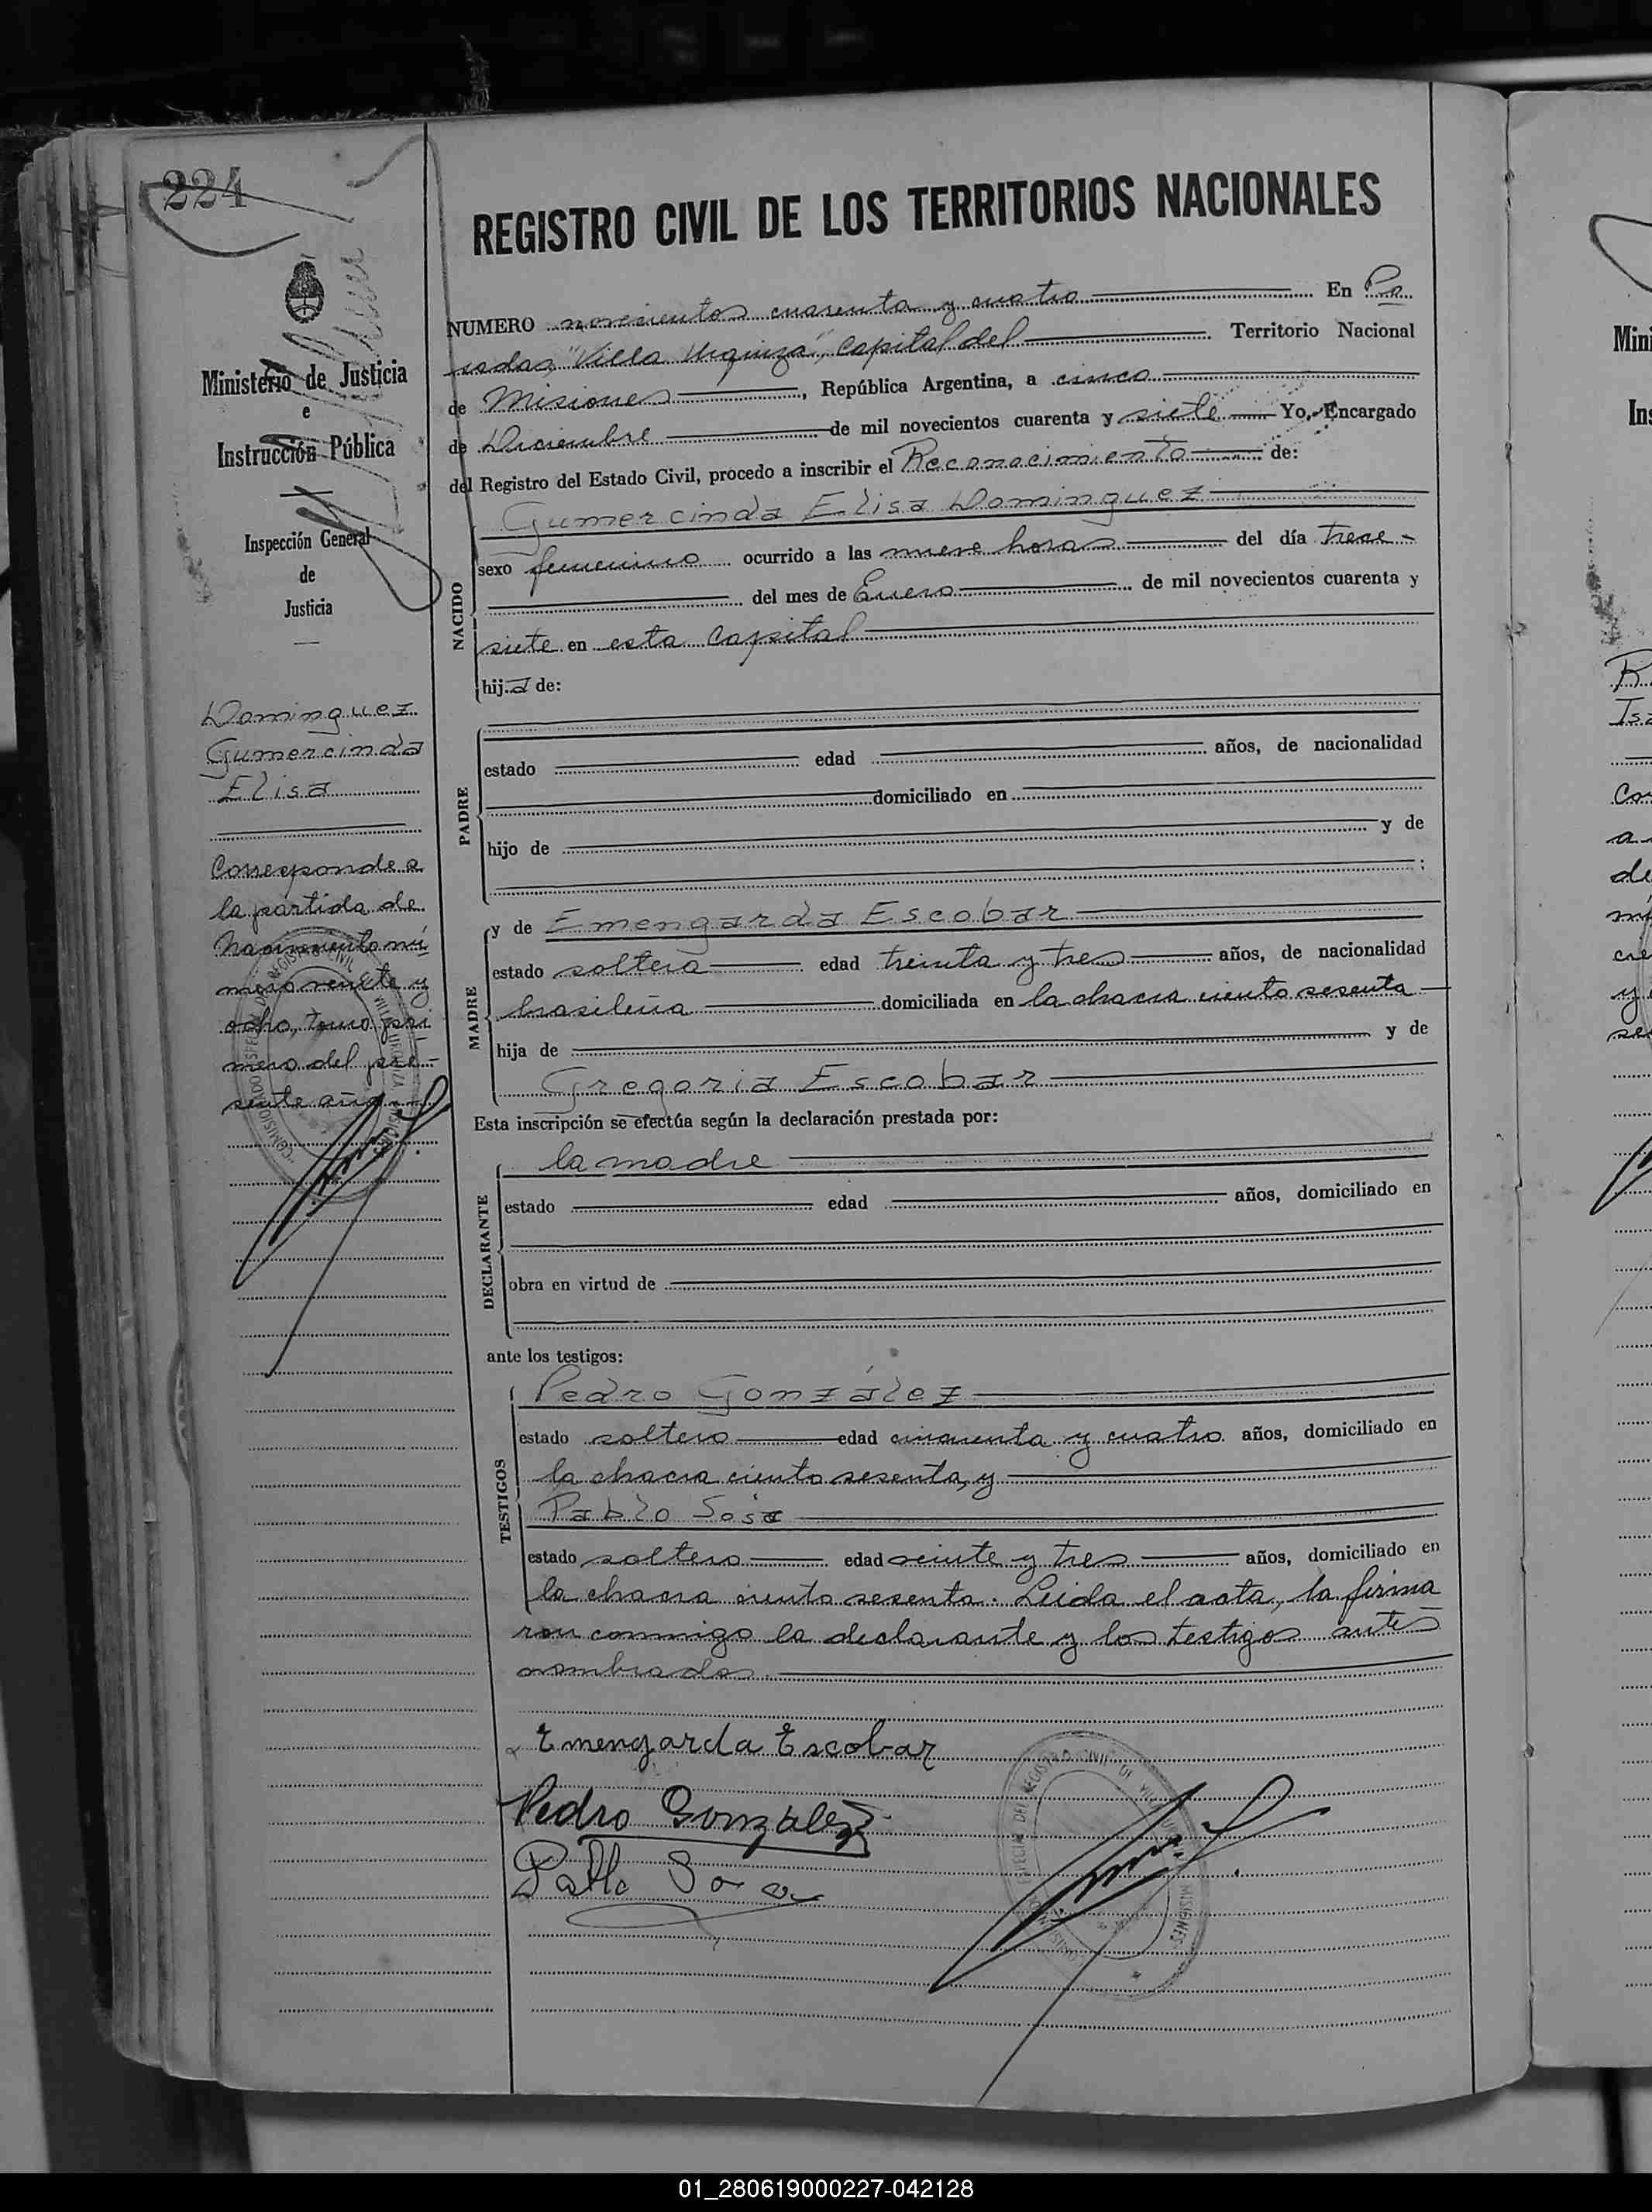 224
Ministerio de Justicia
e
Instrucción Pública
Inspección General
de
Justicia
Dominguez
Gumercinda
Elisa
Corresponde a
la partida de
Nacimiento nú
mero veinte y
ocho, tomo pri
mero del pre-
sente año
REGISTRO CIVIL DE LOS TERRITORIOS NACIONALES
NUMERO novecientos cuarenta y cuatro En Po
sadas, "Villa Urquiza", Capital del Territorio Nacional
de Misiones, República Argentina, a cinco
de Diciembre de mil novecientos cuarenta y siete Yo, Encargado
del Registro del Estado Civil, procedo a inscribir el Reconocimiento de:
NACIDO
Gumercinda Elisa Dominguez
sexo femenino ocurrido a las nueve horas del día trece -
del mes de Enero de mil novecientos cuarenta y
siete en esta Capital
hija de:
PADRE
estado edad años, de nacionalidad
domiciliado en
hijo de y de
;
MADRE
y de Emengarda Escobar
estado soltera edad treinta y tres años, de nacionalidad
brasileña domiciliada en la chacra ciento sesenta
hija de y de
Gregoria Escobar
Esta inscripción se efectúa según la declaración prestada por:
DECLARANTE
la madre
estado edad años, domiciliado en
obra en virtud de
ante los testigos:
TESTIGOS
Pedro González
estado soltero edad cincuenta y cuatro años, domiciliado en
la chacra ciento sesenta, y
Pablo Sosa
estado soltero edad veinte y tres años, domiciliado en
la chacra ciento sesenta. Leida el acta, la firma
ron conmigo la declarante y los testigos antes
nombrados.
Emengarda Escobar
Pedro Gonzalez
Pablo Sosa
01_280619000227-042128